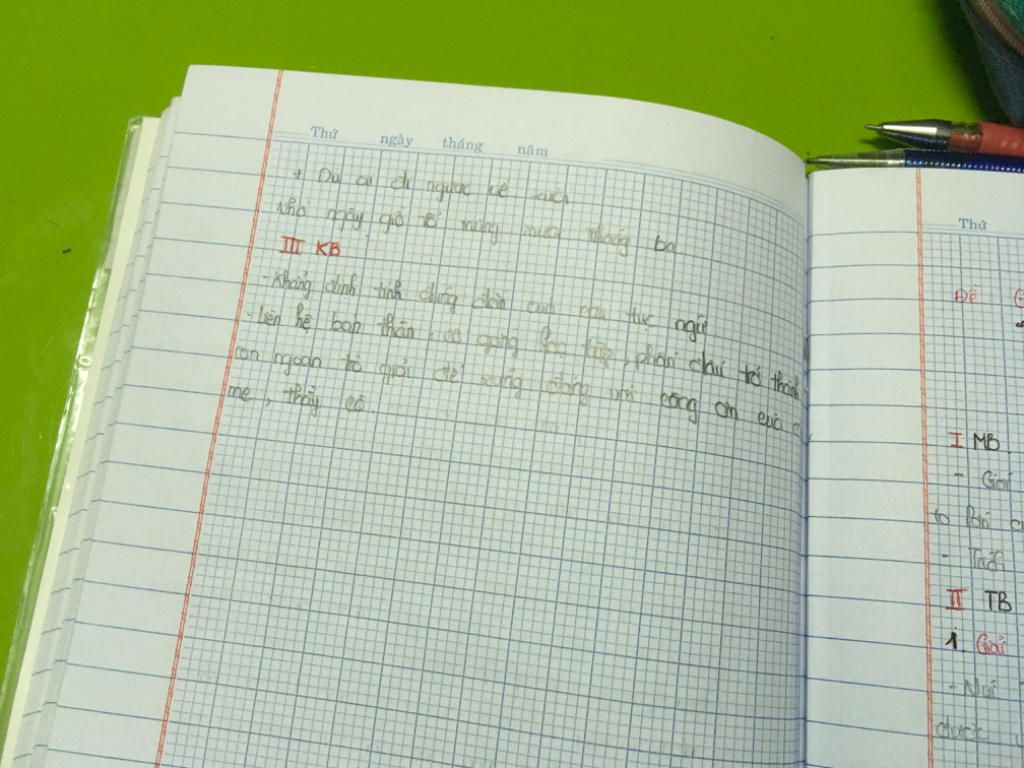 Thứ ngày tháng năm
+ Dù ai đi ngược về xuôi
Nhớ ngày giỗ tổ mùng mười tháng ba
III KB
- Khẳng định tính đúng đắn của câu tục ngữ
- Liên hệ bản thân, cố gắng học tập, phấn đấu trở thành
con ngoan trò giỏi để xứng đáng với công ơn của
mẹ, thầy cô.
Thứ
Đề
I MB
- Giới
to lớn
II TB
1 Giải
- Núi
được